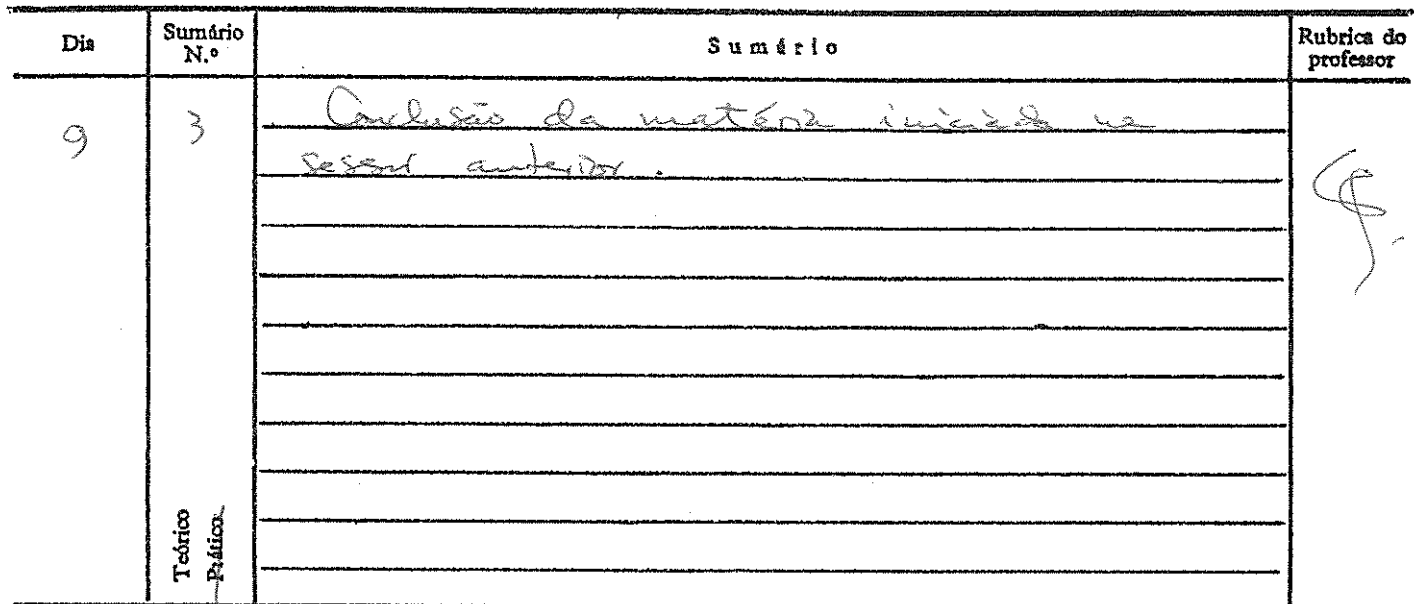 Dia Sumário N.º Sumário Rubrica do professor
9 3 Conclusão da matéria iniciada na
sessão anterior.
Teórico
Prático